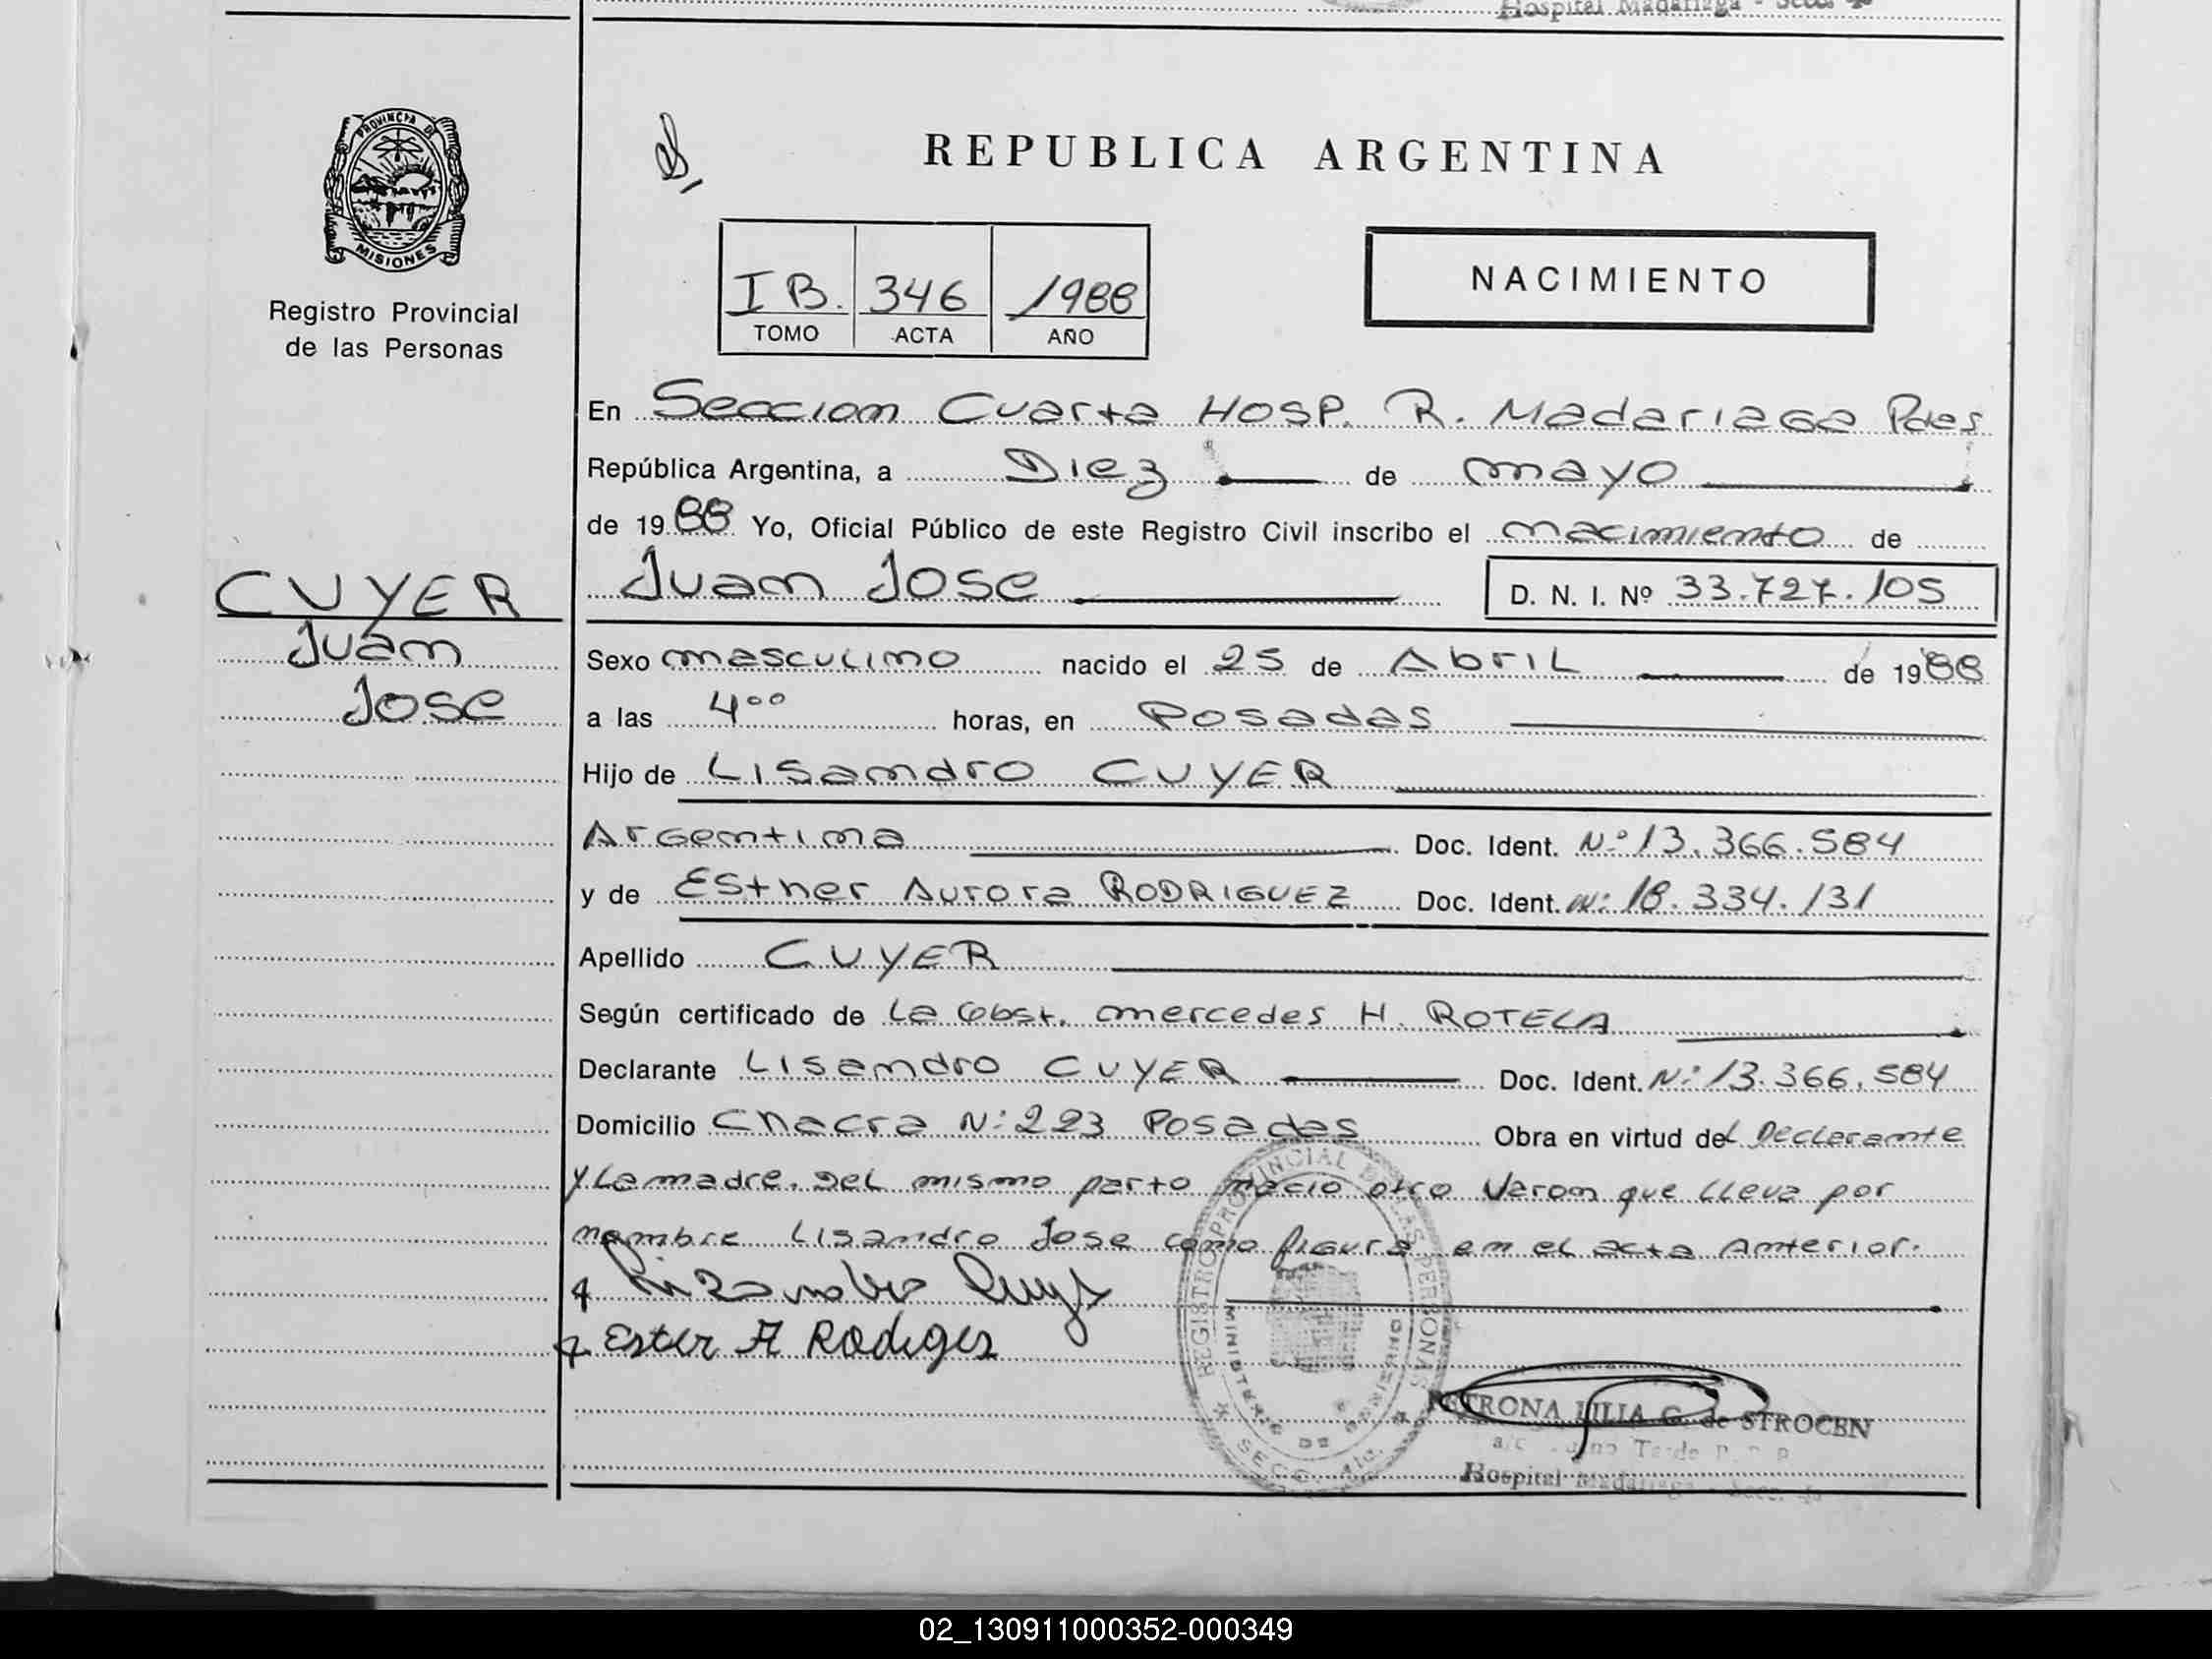 Hospital Madariaga - Secc. 4a
PROVINCIA DE
MISIONES
Registro Provincial
de las Personas
REPUBLICA ARGENTINA
I B. 346 1988
TOMO ACTA AÑO
NACIMIENTO
En Seccion Cuarta Hosp. R. Madariaga Pdas
República Argentina, a Diez de mayo
de 1988 Yo, Oficial Público de este Registro Civil inscribo el nacimiento de
Juan Jose D. N. I. Nº 33.727.105
CUYER
Juan
Jose
Sexo masculino nacido el 25 de Abril de 1988
a las 4°° horas, en Posadas
Hijo de Lisandro CUYER
Argentina Doc. Ident. N° 13.366.584
y de Esther Aurora RODRIGUEZ Doc. Ident. N: 18.334.131
Apellido CUYER
Según certificado de la Obst. mercedes H. ROTELA
Declarante Lisandro CUYER Doc. Ident. N: 13.366.584
Domicilio Chacra N: 223 Posadas Obra en virtud del Declarante
y la madre. Del mismo parto nacio otro Varon que lleva por
nombre Lisandro Jose como figura en el acta Anterior.
Ester A Rodiges
REGISTRO PROVINCIAL DE LAS PERSONAS
MINISTERIO DE GOBIERNO
SECC. 4ta.
PETRONA LILIA G. de STROCEN
a/c Turno Tarde R. P. P.
Hospital Madariaga - Secc. 4a
02_130911000352-000349